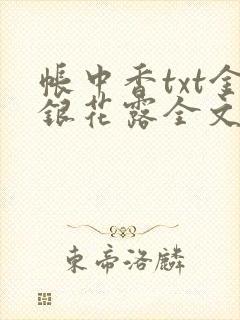 帳中香txt金
銀花露全文
東帝洛麟